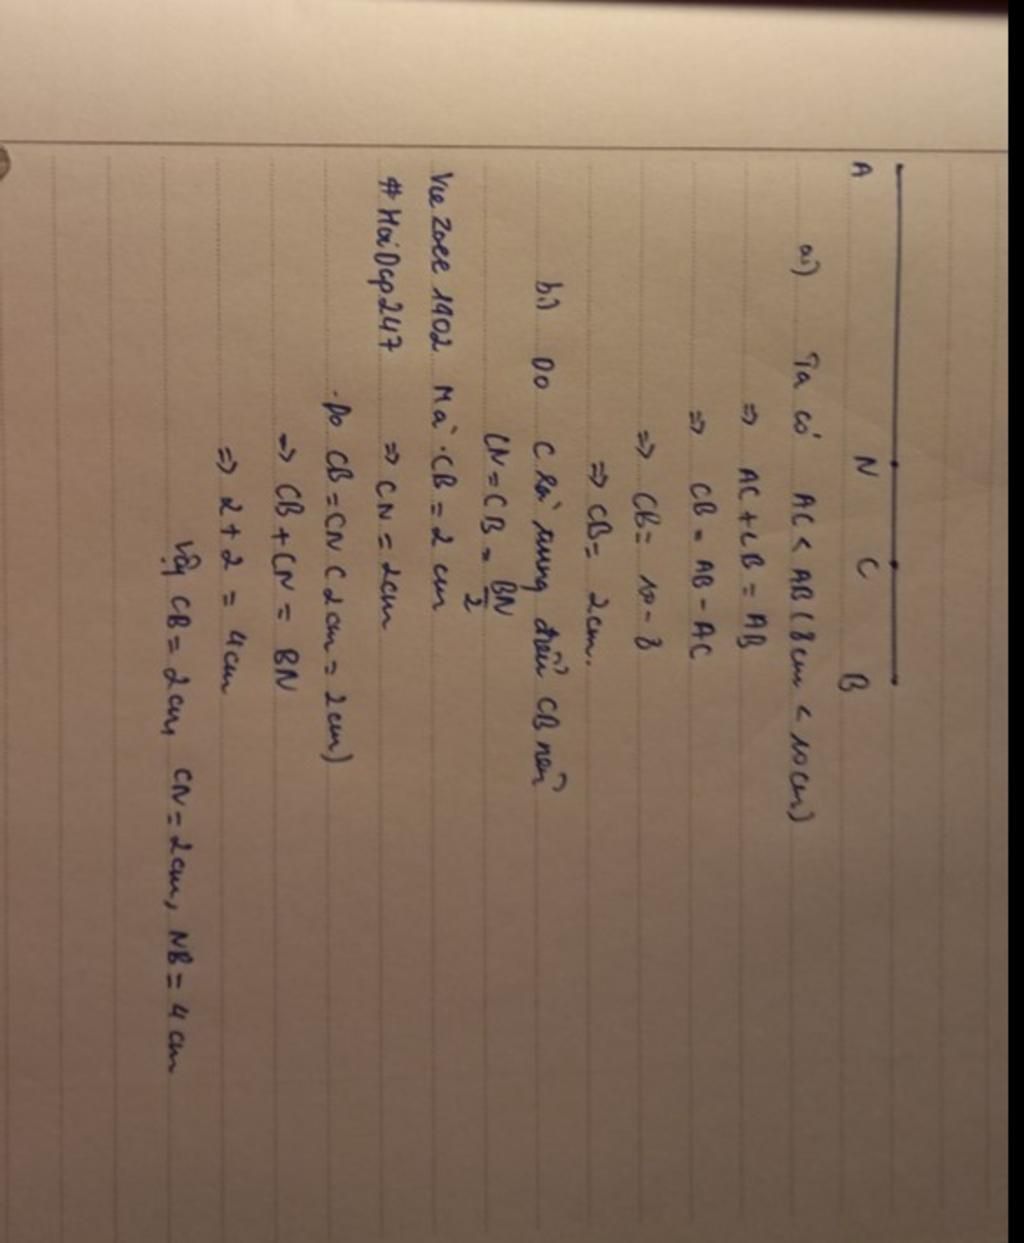 A N C B
a) Ta có AC < AB (8cm < 10cm)
=> AC + CB = AB
=> CB = AB - AC
=> CB = 10 - 8
=> CB = 2cm.
b) Do C là trung điểm CB nên
CN = CB = BN/2
VieZoee1902 Mà CB = 2cm
#HoiDap247 => CN = 2cm
Do CB = CN ( 2cm = 2cm)
=> CB + CN = BN
=> 2 + 2 = 4cm
Vậy CB = 2cm, CN = 2cm, NB = 4cm